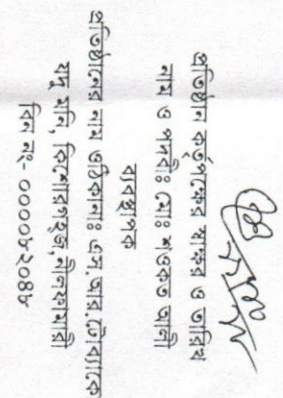 প্রতিষ্ঠান কর্তৃপক্ষের স্বাক্ষর ও তারিখ
নাম ও পদবিঃ মোঃ শওকত আলী
ব্যবস্থাপক
প্রতিষ্ঠানের নাম ও ঠিকানাঃ এস আর, টোব্যাকো
যদু মনি, কিশোরগঞ্জ, নীলফামারী
বিন নং- ০০০০৮২০৪৮